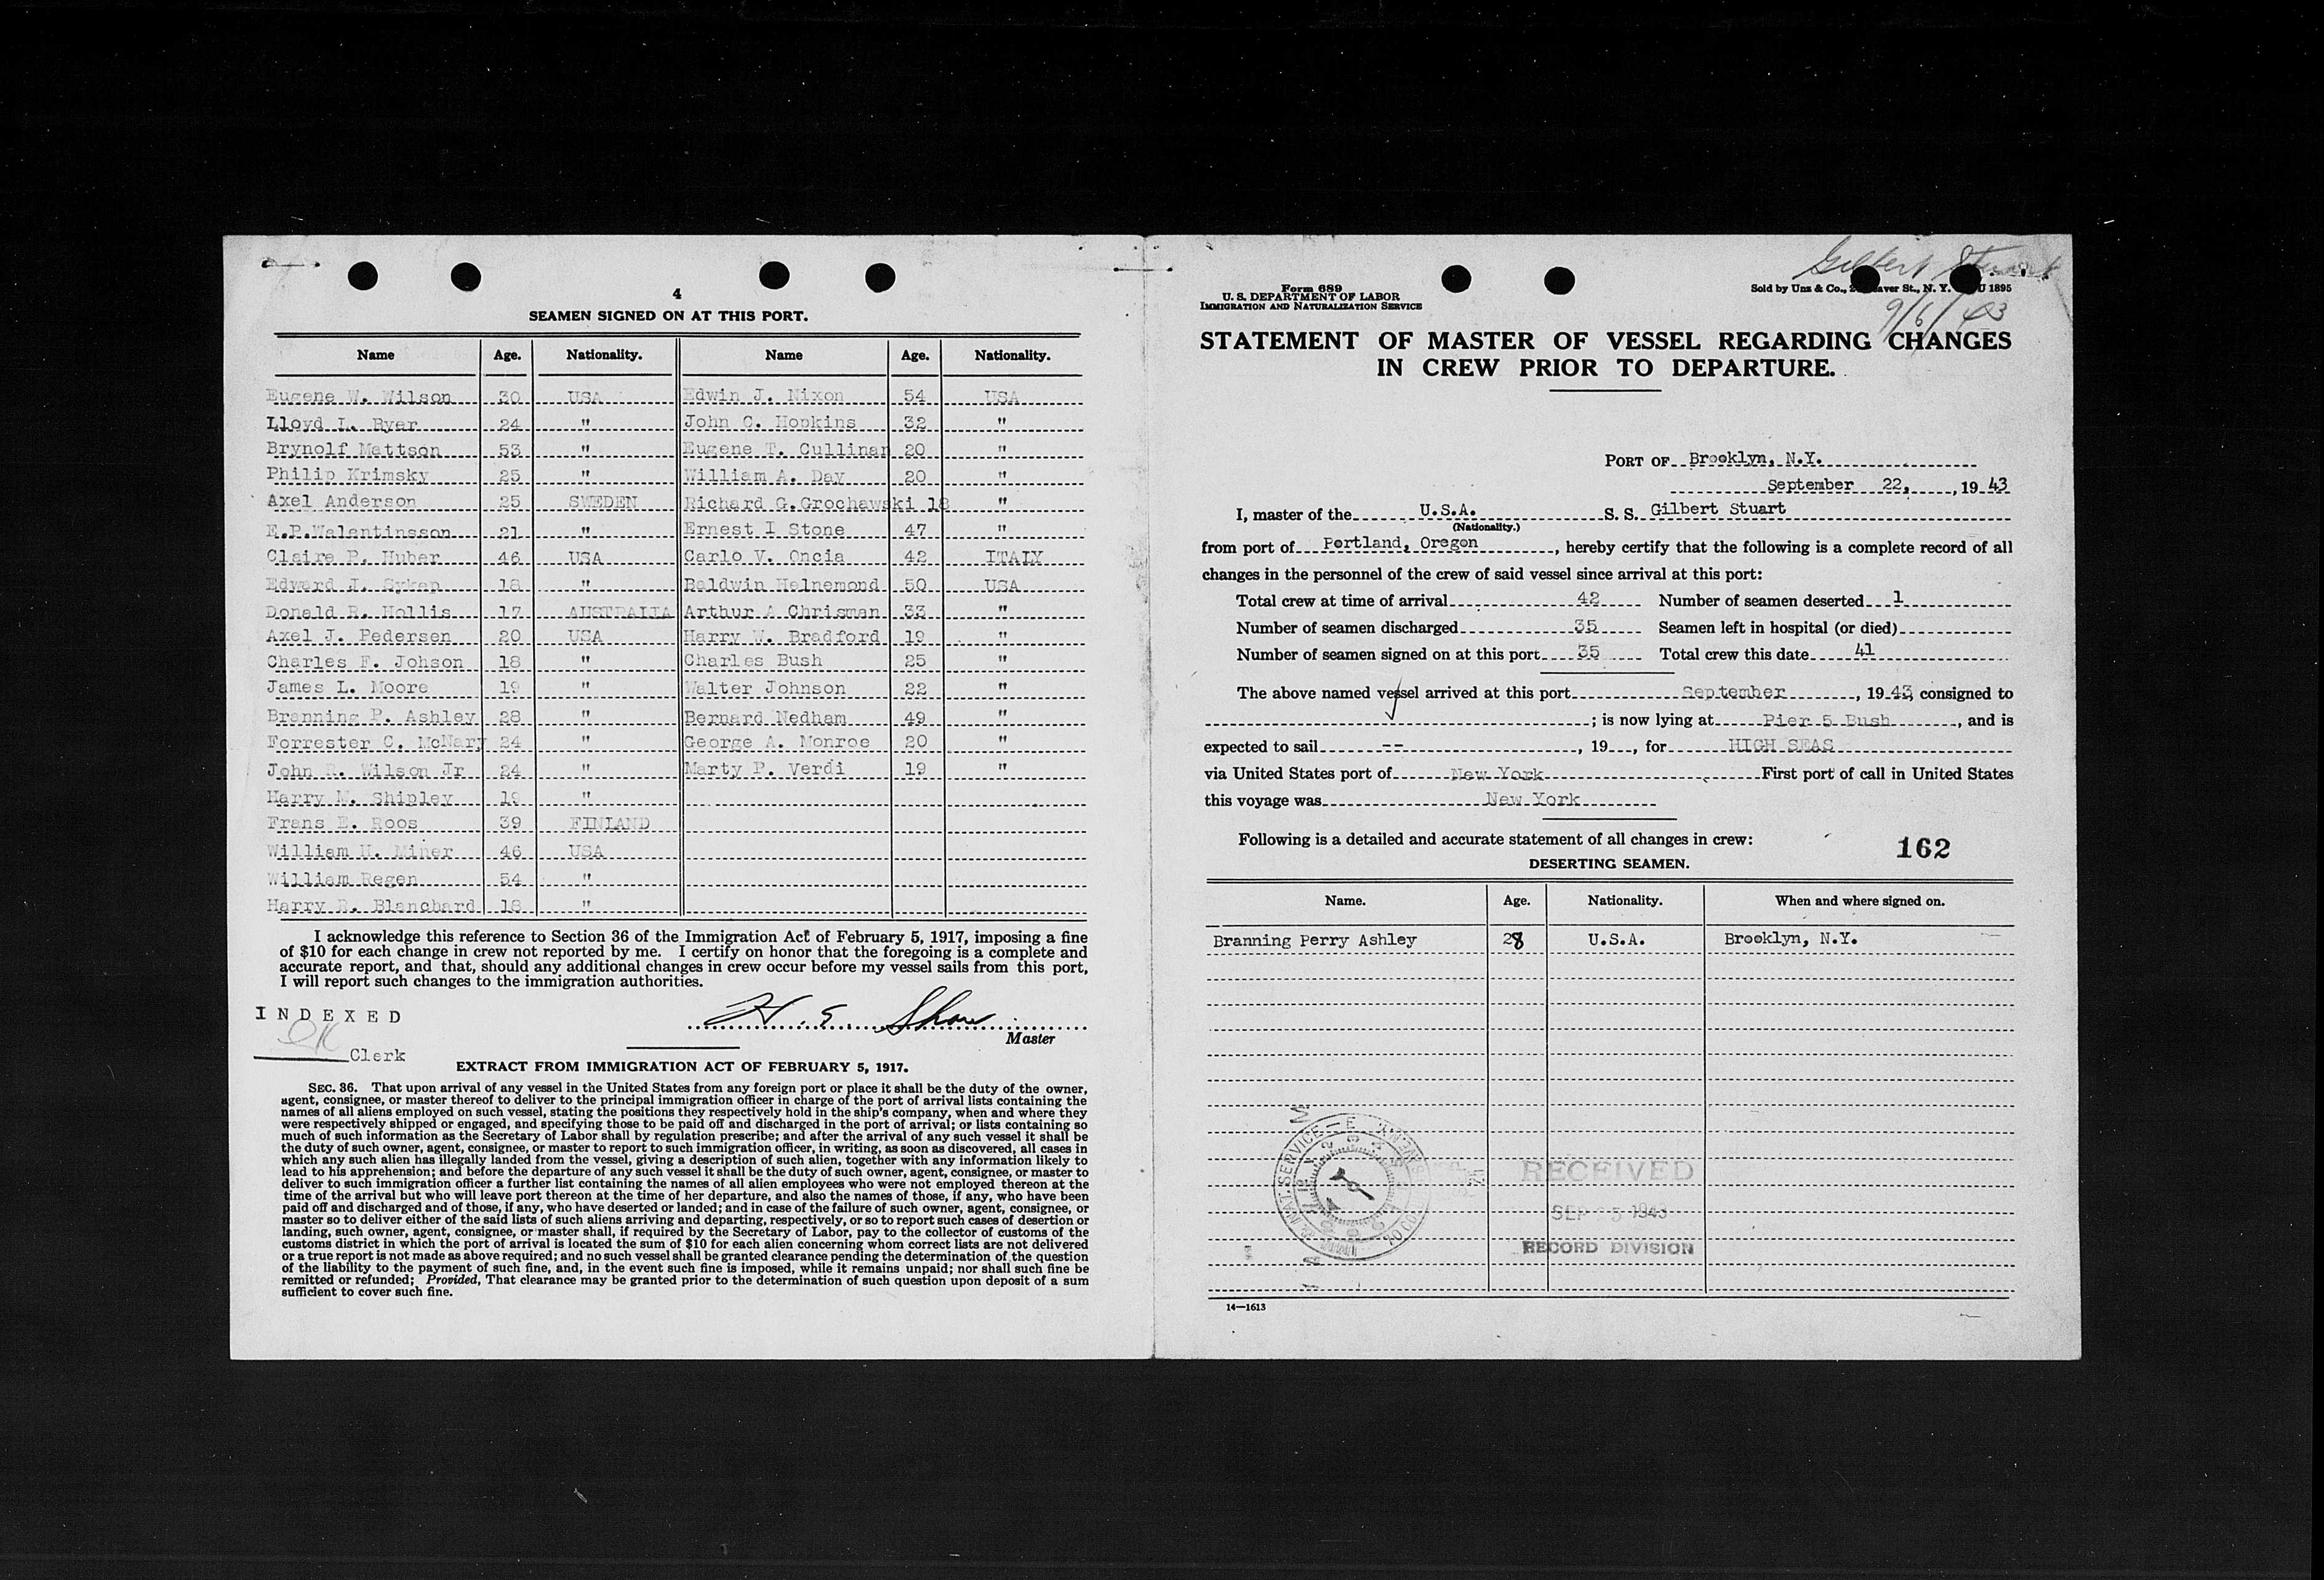 4
SEAMEN SIGNED ON AT THIS PORT.
Name Age. Nationality. Name Age. Nationality.
Eugene W. Wilson 30 USA Edwin J. Nixon 54 USA
Lloyd L. Byer 24 " John C. Hopkins 32 "
Brynolf Mattson 53 " Eugene T. Cullinan 20 "
Philip Krimsky 25 " William A. Day 20 "
Axel Anderson 25 SWEDEN Richard G.Grochawski 18 "
E.P.Walentinsson 21 " Ernest I Stone 47 "
Claire P. Huber 46 USA Carlo V. Oncia 42 ITALY
Edward J. 18 " Baldwin Helnemond 50 USA
Donald R. Hollis 17 AUSTRALIA Arthur A Chrisman 33 "
Axel J. Pedersen 20 USA Harry W. Bradford 19 "
Charles F. Johson 18 " Charles Bush 25 "
James L. Moore 19 " Walter Johnson 22 "
Branning P. Ashley 28 " Bernard Nedham 49 "
Forrester C. McNary 24 " George A. Monroe 20 "
John R. Wilson Jr 24 " Marty P. Verdi 19 "
Harry M. Shipley 19 "
Frans E. Roos 39 FINLAND
William H. Miner 46 USA
William Regen 54 "
Harry R. Blanchard 18 "
I acknowledge this reference to Section 36 of the Immigration Act of February 5, 1917, imposing a fine
of $10 for each change in crew not reported by me. I certify on honor that the foregoing is a complete and
accurate report, and that, should any additional changes in crew occur before my vessel sails from this port,
I will report such changes to the immigration authorities.
INDEXED
H. S. Shaw
Master
Clerk
EXTRACT FROM IMMIGRATION ACT OF FEBRUARY 5, 1917.
SEC. 36. That upon arrival of any vessel in the United States from any foreign port or place it shall be the duty of the owner,
agent, consignee, or master thereof to deliver to the principal immigration officer in charge of the port of arrival lists containing the
names of all aliens employed on such vessel, stating the positions they respectively hold in the ship's company, when and where they
were respectively shipped or engaged, and specifying those to be paid off and discharged in the port of arrival; or lists containing so
much of such information as the Secretary of Labor shall by regulation prescribe; and after the arrival of any such vessel it shall be
the duty of such owner, agent, consignee, or master to report to such immigration officer, in writing, as soon as discovered, all cases in
which any such alien has illegally landed from the vessel, giving a description of such alien, together with any information likely to
lead to his apprehension; and before the departure of any such vessel it shall be the duty of such owner, agent, consignee, or master to
deliver to such immigration officer a further list containing the names of all alien employees who were not employed thereon at the
time of the arrival but who will leave port thereon at the time of her departure, and also the names of those, if any, who have been
paid off and discharged and of those, if any, who have deserted or landed; and in case of the failure of such owner, agent, consignee, or
master so to deliver either of the said lists of such aliens arriving and departing, respectively, or so to report such cases of desertion or
landing, such owner, agent, consignee, or master shall, if required by the Secretary of Labor, pay to the collector of customs of the
customs district in which the port of arrival is located the sum of $10 for each alien concerning whom correct lists are not delivered
or a true report is not made as above required; and no such vessel shall be granted clearance pending the determination of the question
of the liability to the payment of such fine, and, in the event such fine is imposed, while it remains unpaid; nor shall such fine be
remitted or refunded; Provided, That clearance may be granted prior to the determination of such question upon deposit of a sum
sufficient to cover such fine.
Gilbert Stuart
9/6/43
Form 689
U. S. DEPARTMENT OF LABOR
IMMIGRATION AND NATURALIZATION SERVICE
Sold by Unz & Co., St., N. Y. 1895
STATEMENT OF MASTER OF VESSEL REGARDING CHANGES
IN CREW PRIOR TO DEPARTURE.
PORT OF Brooklyn, N.Y.
September 22, , 19 43
I, master of the U.S.A. S. S. Gilbert Stuart
(Nationality.)
from port of Portland, Oregon , hereby certify that the following is a complete record of all
changes in the personnel of the crew of said vessel since arrival at this port:
Total crew at time of arrival 42 Number of seamen deserted 1
Number of seamen discharged 35 Seamen left in hospital (or died)
Number of seamen signed on at this port 35 Total crew this date 41
The above named vessel arrived at this port September , 19 43, consigned to
; is now lying at Pier 5 Bush , and is
expected to sail -- , 19 , for HIGH SEAS
via United States port of New York First port of call in United States
this voyage was New York
Following is a detailed and accurate statement of all changes in crew:
162
DESERTING SEAMEN.
Name. Age. Nationality. When and where signed on.
Branning Perry Ashley 28 U.S.A. Brooklyn, N.Y.
RECEIVED
SEP 5 1943
RECORD DIVISION
14—1613